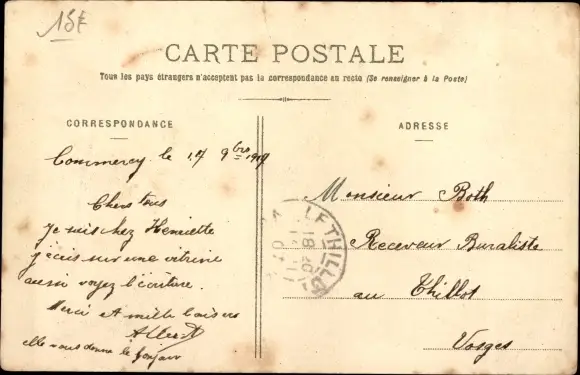 15€
CARTE POSTALE
Tous les pays étrangers n'acceptent pas la correspondance au recto (Se renseigner à la Poste)
CORRESPONDANCE
Commercy le 14 9bre
Chers tous
je suis chez Henriette
j'écris sur une vitrine
aussi voyez l'écriture.
Merci et mille baisers
Albert
elle vous donne le bonjour
ADRESSE
Monsieur Both
Receveur Buraliste
au Thillot
Vosges
LE THILLOT